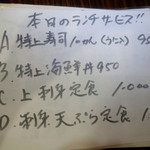 本日のランチサービス!!
A.特上寿司
B.特上海鮮丼 950
C.上刺身定食 1.000
D.刺身天ぷら定食